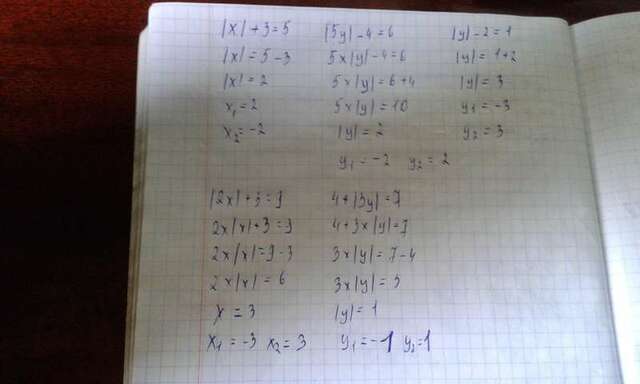 |x|+3=5
|x|=5-3
|x|=2
x₁=2
x₂=-2
|5y|-4=6
5×|y|-4=6
5×|y|=6+4
5×|y|=10
|y|=2
y₁=-2 y₂=2
|y|-2=1
|y|=1+2
|y|=3
y₁=-3
y₂=3
|2x|+3=9
2×|x|+3=9
2×|x|=9-3
2×|x|=6
x=3
x₁=-3 x₂=3
4+|3y|=7
4+3×|y|=7
3×|y|=7-4
3×|y|=3
|y|=1
y₁=-1 y₂=1